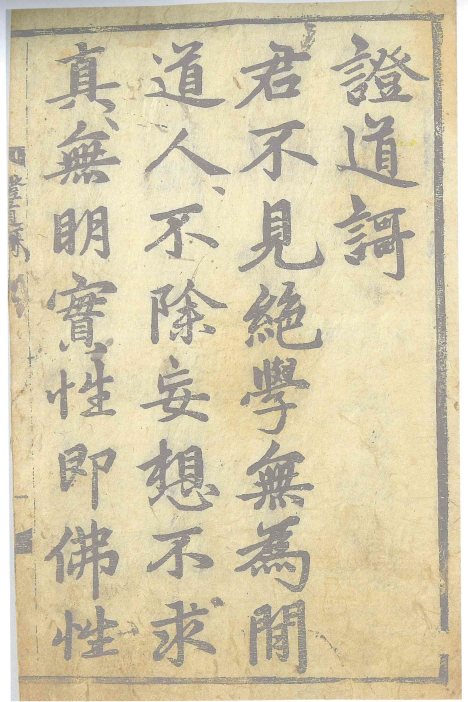 證道謌
君不見絶學無為閒
道人不除妄想不求
真無明實性即佛性